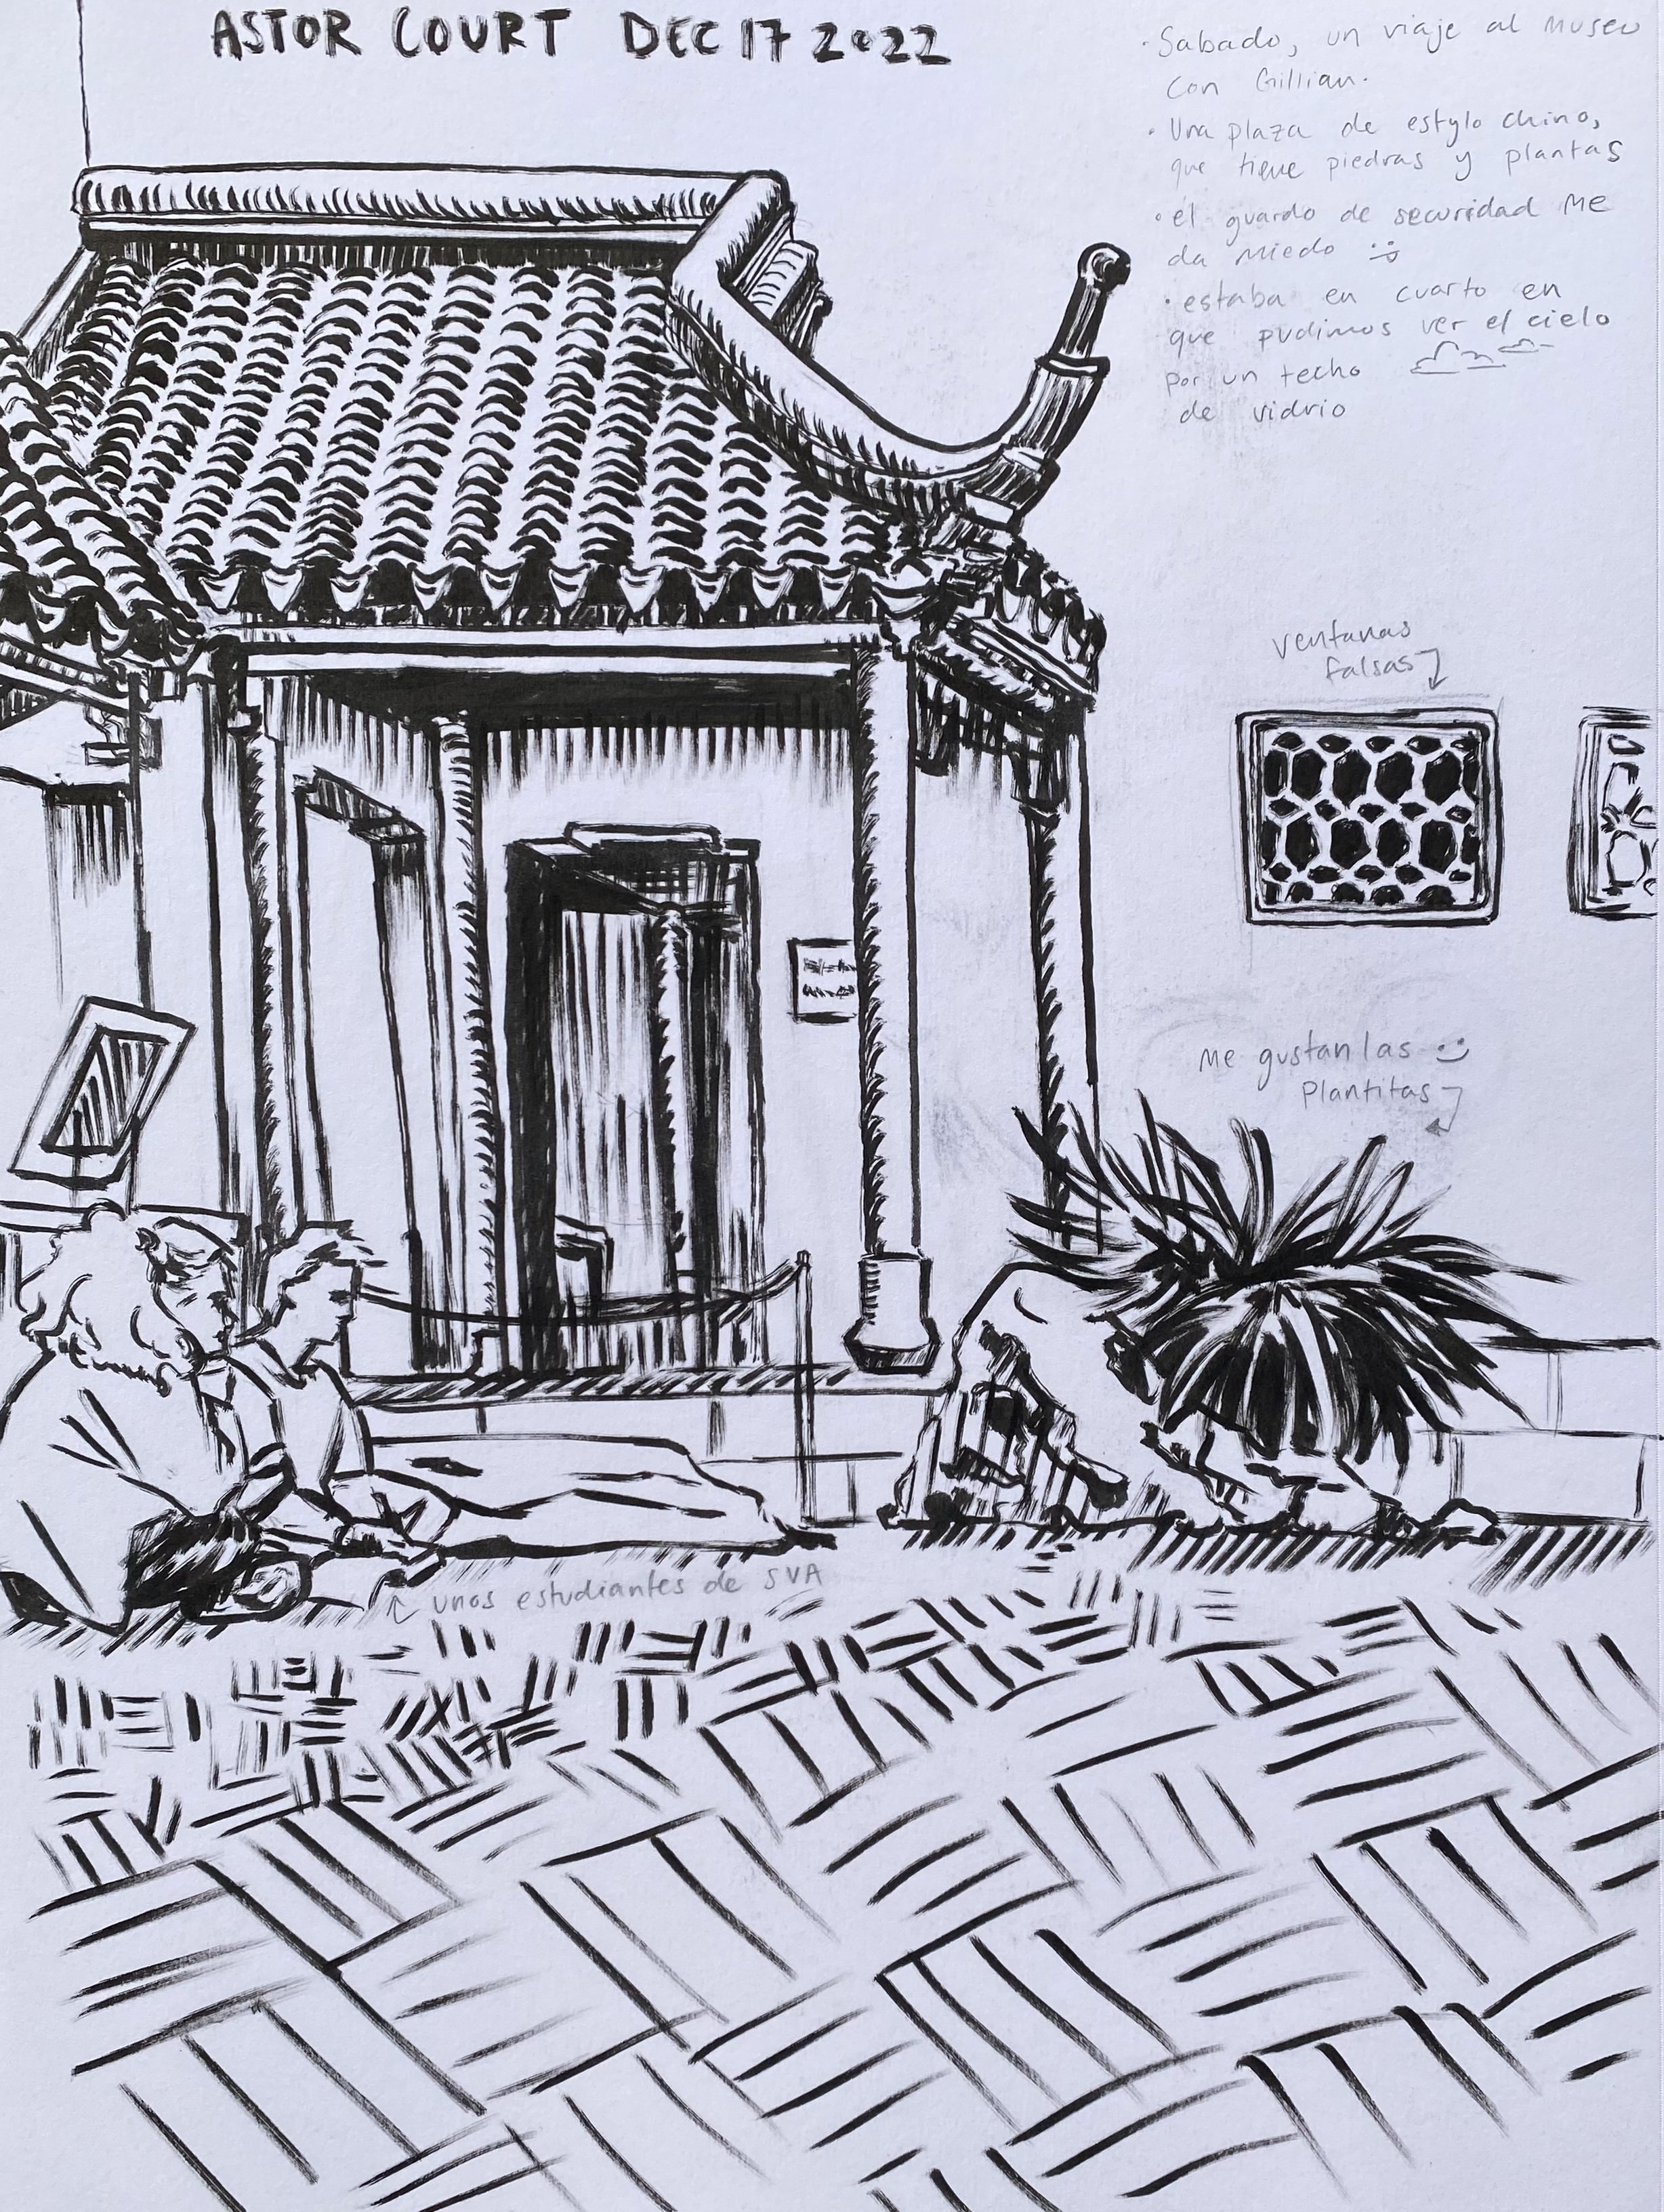 ASTOR COURT DEC 17 2022
• Sabado, un viaje al museo
con Gillian.
• Una plaza de estylo chino,
que tiene piedras y plantas
• el guardo de securidad me
da miedo
• estaba en cuarto en
que pudimos ver el cielo
por un techo
de vidrio
ventanas
falsas
me gustan las
plantitas
unos estudiantes de SVA